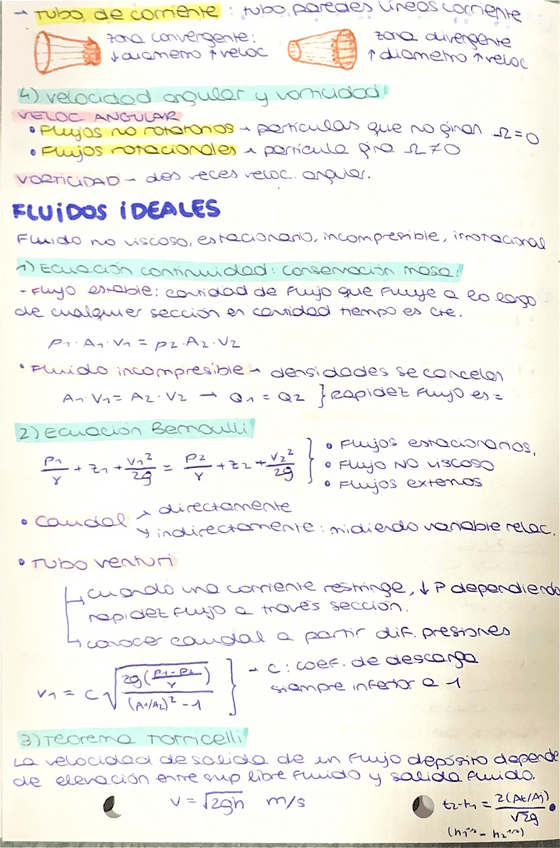 → Tubo de corriente : tubo paredes líneas corriente
zona convergente:
↓ diametro ↑ veloc
zona divergente
↑ diametro ↑ veloc
4) velocidad angular y vorticidad
VELOC ANGULAR
• Flujos no rotatorios → particulas que no giran Ω=0
• Flujos rotacionales → particula gira Ω≠0
VORTICIDAD → dos veces veloc. angular.
FLUiDOS iDEALES
Fluido no viscoso, estacionario, incompresible, irrotacional
1) Ecuación continuidad: conservación masa:
- Flujo estable: cantidad de flujo que fluye a lo largo
de cualquier sección en cantidad tiempo es cte.
ρ1·A1·V1 = ρ2·A2·V2
• Fluido incompresible → densidades se cancelan
A1·V1 = A2·V2 → Q1 = Q2 } Rapidez flujo es =
2) Ecuación Bernoulli
P1/γ + z1 + V1²/2g = P2/γ + z2 + V2²/2g
• Flujos estacionarios,
• Flujo NO viscoso
• Flujos externos
• Caudal
directamente
indirectamente: midiendo variable relac.
• Tubo venturi
↳ cuando una corriente restringe, ↓ P dependiendo
rapidez flujo a través sección.
↳ conocer caudal a partir dif. presiones
V1 = C √(2g((P1-P2)/γ) / ((A1/A2)² - 1))
- C: coef. de descarga
siempre inferior a 1
3) Teorema Torricelli
La velocidad de salida de un flujo depósito depende
de elevación entre sup libre fluido y salida fluido.
V = √2gh m/s
t2-t1 = 2(At/Aj)/√2g
(h1^1/2 - h2^1/2)